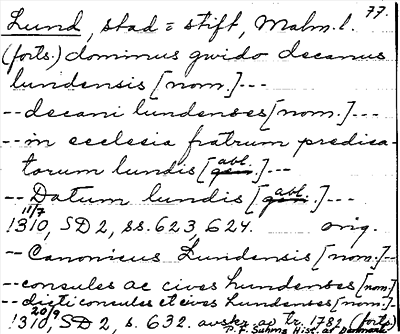 77.
Lund, stad = stift, Malm. l.
(forts.) dominus gwido decanus
lundensis [nom.]---
-- decani lundenses [nom.]---
-- in ecclesia fratrum predica-
torum lundis [gen. abl.]---
-- Datum lundis [gen. abl.]---
11/7
1310, SD 2, ss. 623, 624. orig.
-- Canonicus Lundensis [nom.]--
-- consules ac cives hundenses [nom.]
-- dicti consules et cives hundenses [nom.]-
20/9
1310, SD 2, s. 632. avskr. av tr. 1782 (forts.)
P. F. Suhms Hist. af Danmark